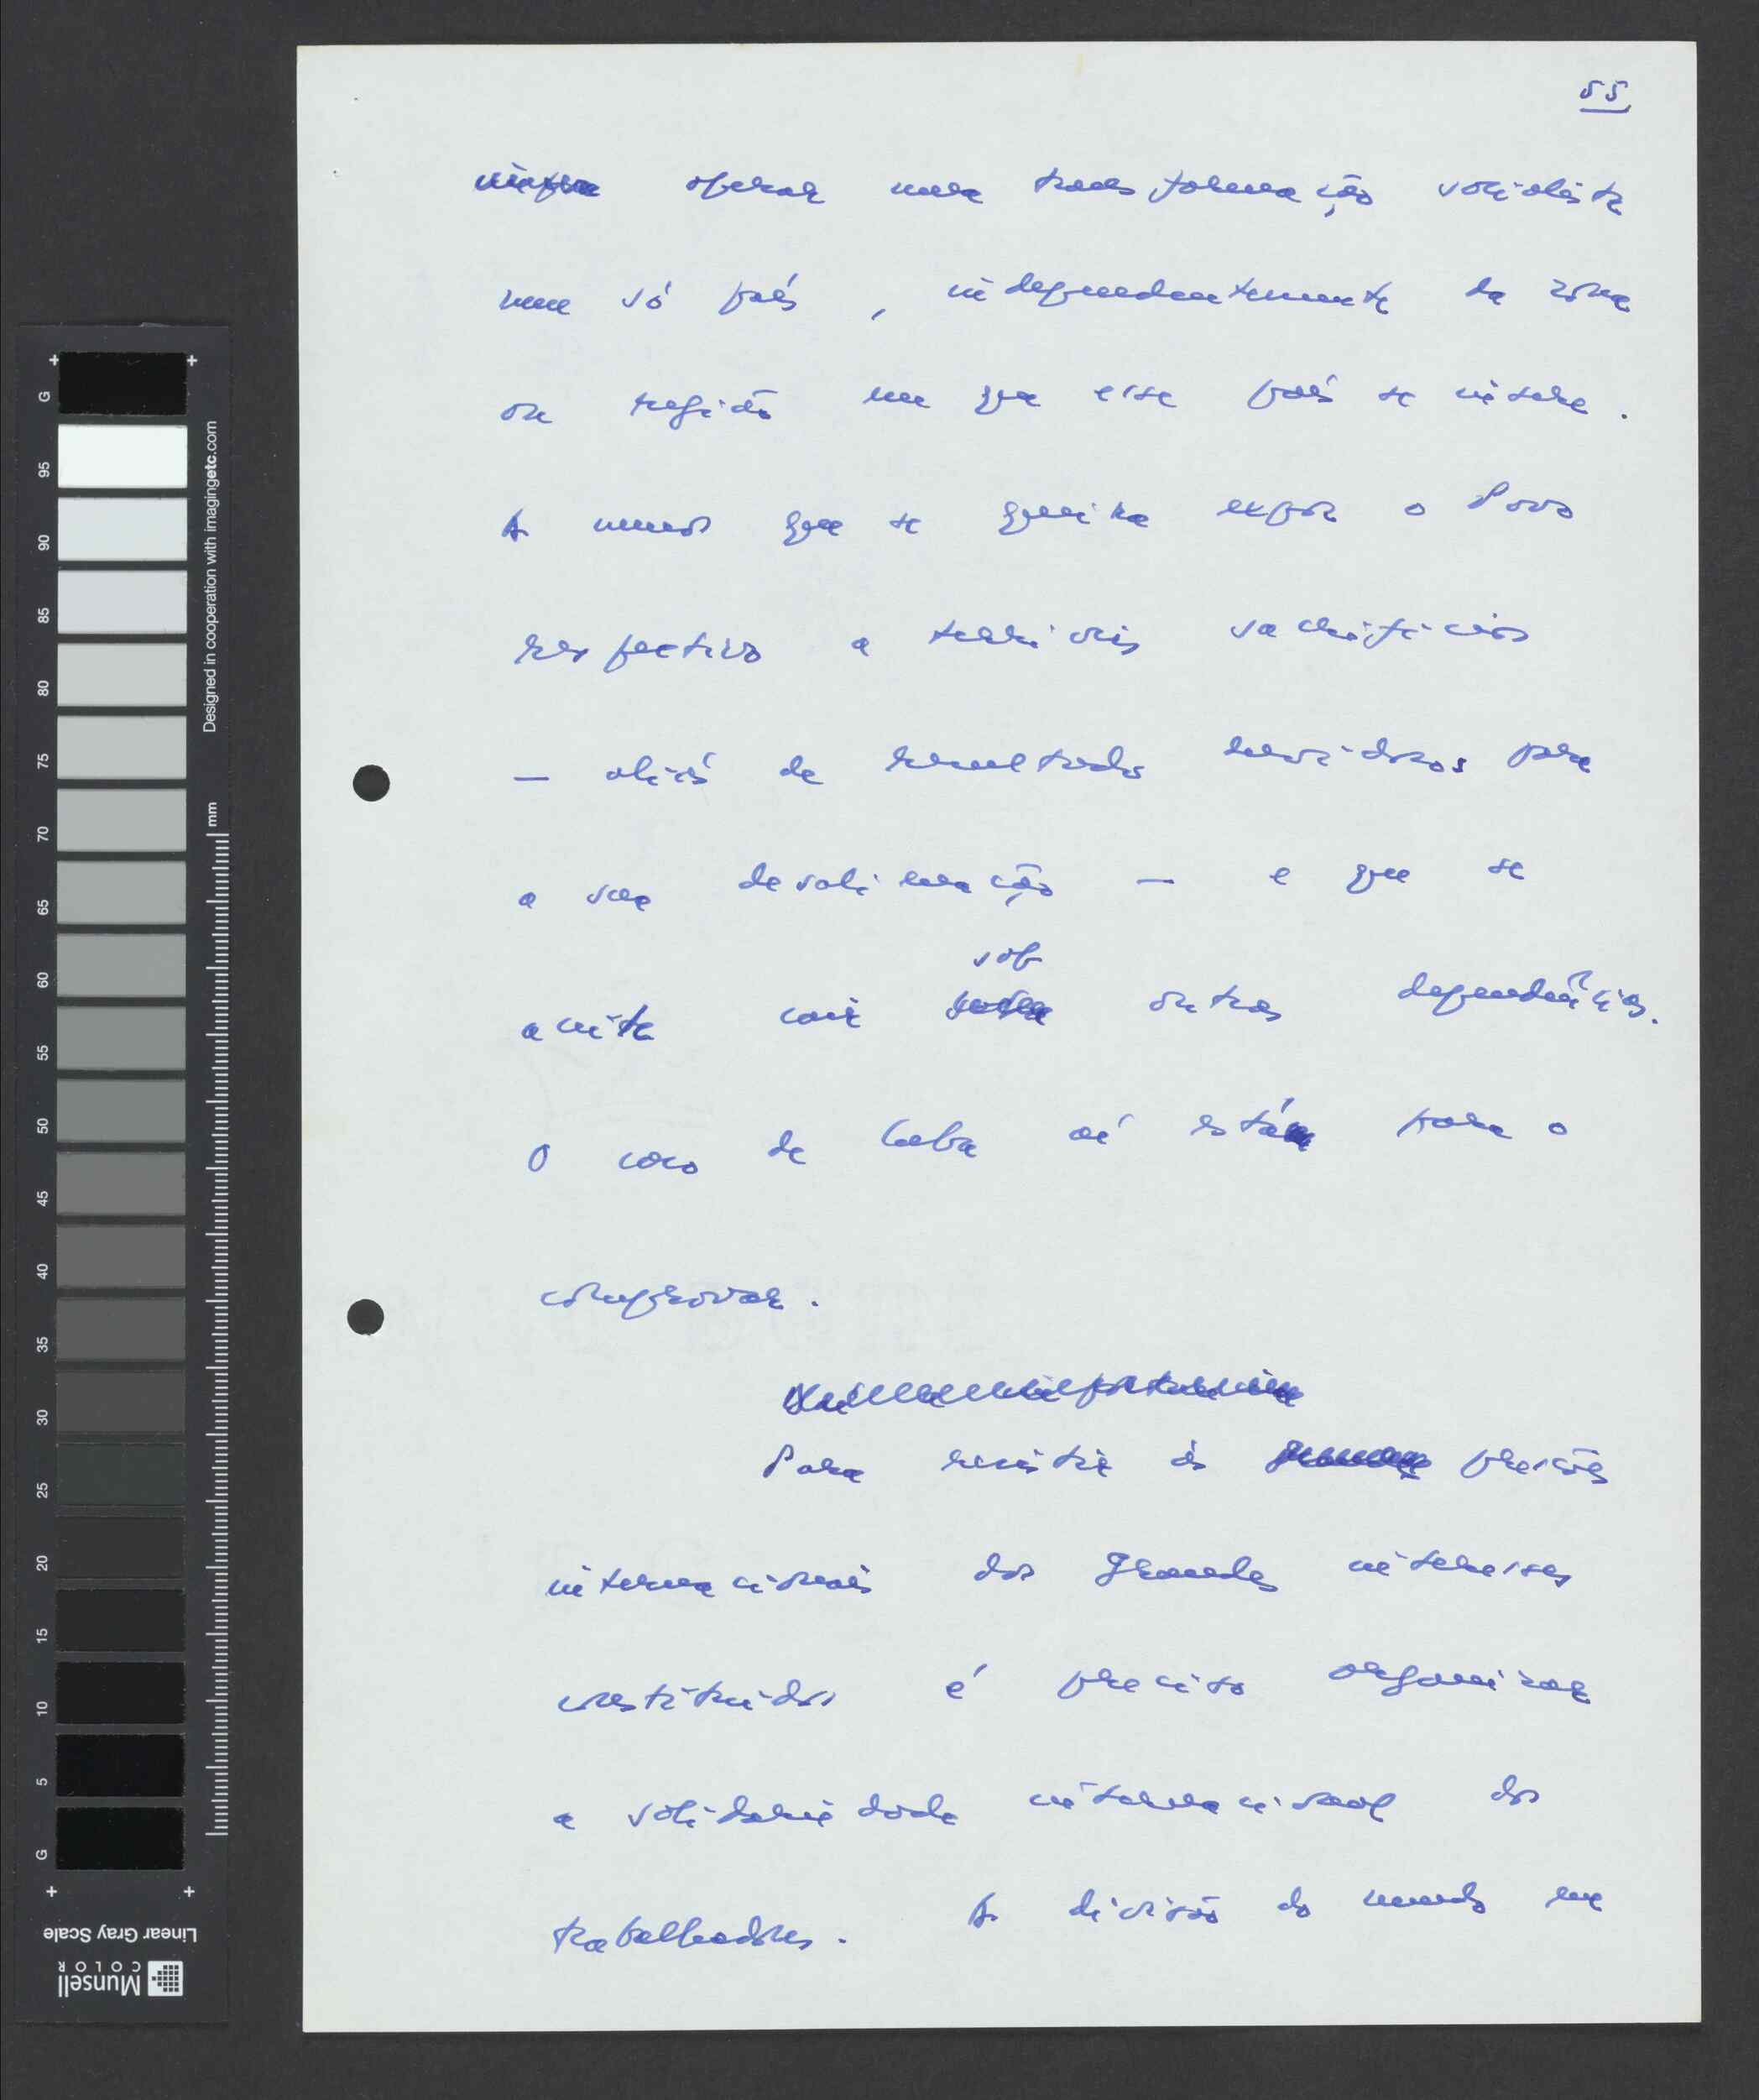 55
operar uma transformação socialista
num só país, independentemente da zona
ou região em que esse país se insere.
A menos que se queira expor o Povo
respectivo a terríveis sacrifícios
— aliás de resultados duvidosos para
a sua desalienação — e que se
aceite cair sob outras dependências.
O caso de Cuba aí está para o
comprovar.
Para resistir às pressões
internacionais dos grandes interesses
constituídos é preciso organizar
a solidariedade internacional dos
trabalhadores. A divisão do mundo em
G 95 90 85 80 75 70 65 60 55 50 45 40 35 30 25 20 15 10 5 G
mm
Designed in cooperation with imagingetc.com
Linear Gray Scale
Munsell
COLOR